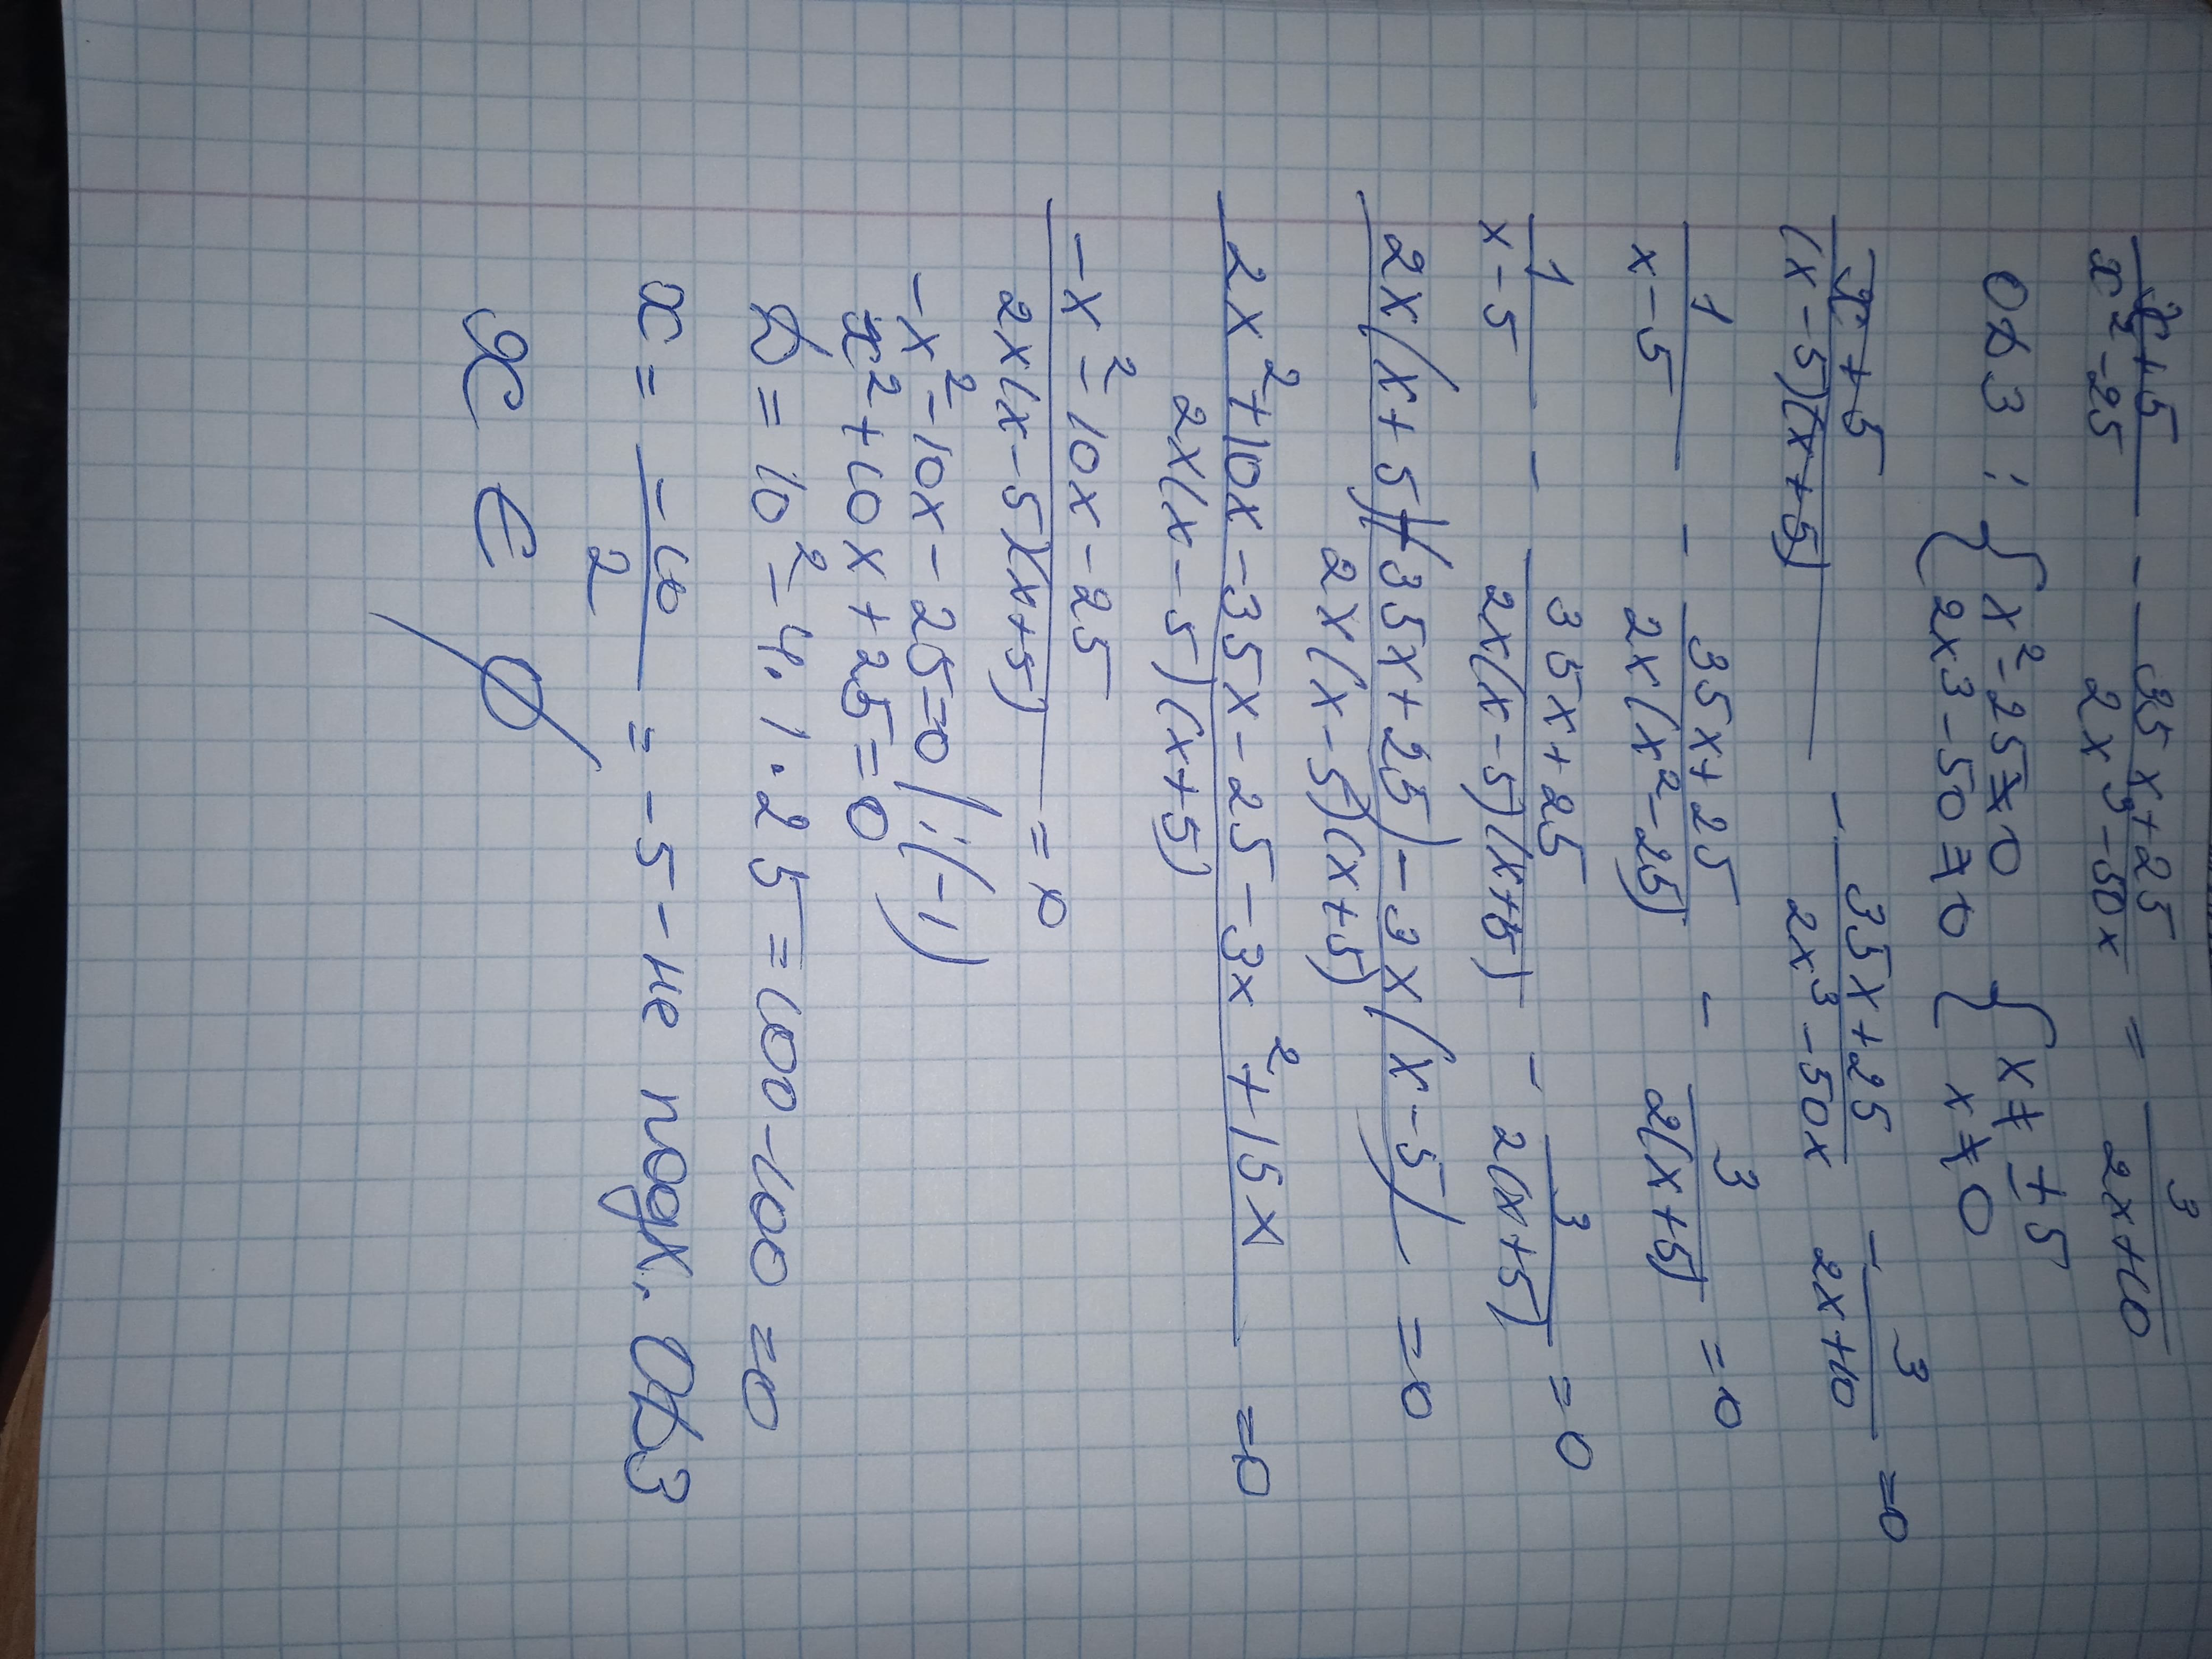 (x+5)/(x²-25) - (35x+25)/(2x³-50x) = 3/(2x+10)
ОДЗ: { x²-25≠0 { x≠±5
{ 2x3-50≠0 { x≠0
(x+5)/((x-5)(x+5)) - (35x+25)/(2x³-50x) - 3/(2x+10) =0
1/(x-5) - (35x+25)/(2x(x²-25)) - 3/(2(x+5)) =0
1/(x-5) - (35x+25)/(2x(x-5)(x+5)) - 3/(2(x+5)) =0
(2x(x+5)-(35x+25)-3x(x-5))/(2x(x-5)(x+5)) =0
(2x²+10x-35x-25-3x²+15x)/(2x(x-5)(x+5)) =0
(-x²-10x-25)/(2x(x-5)(x+5)) =0
-x²-10x-25=0 |:(-1)
x²+10x+25=0
D=10²-4·1·25=100-100=0
x = -10/2 = -5 - не подх. ОДЗ
x ∈ ∅